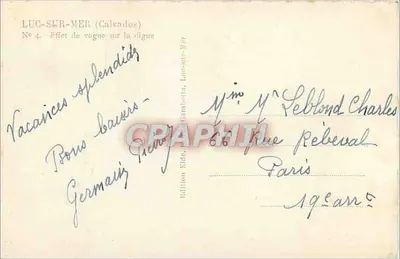 LUC-SUR-MER (Calvados)
No 4. - Effet de vague sur la digue
Vacances splendides
Bons baisers -
Germain
Mme Mr Leblond Charles
66 Rue Rébeval
Paris
19e arrt
Edition
Luc-sur-Mer
CPARAMA.COM